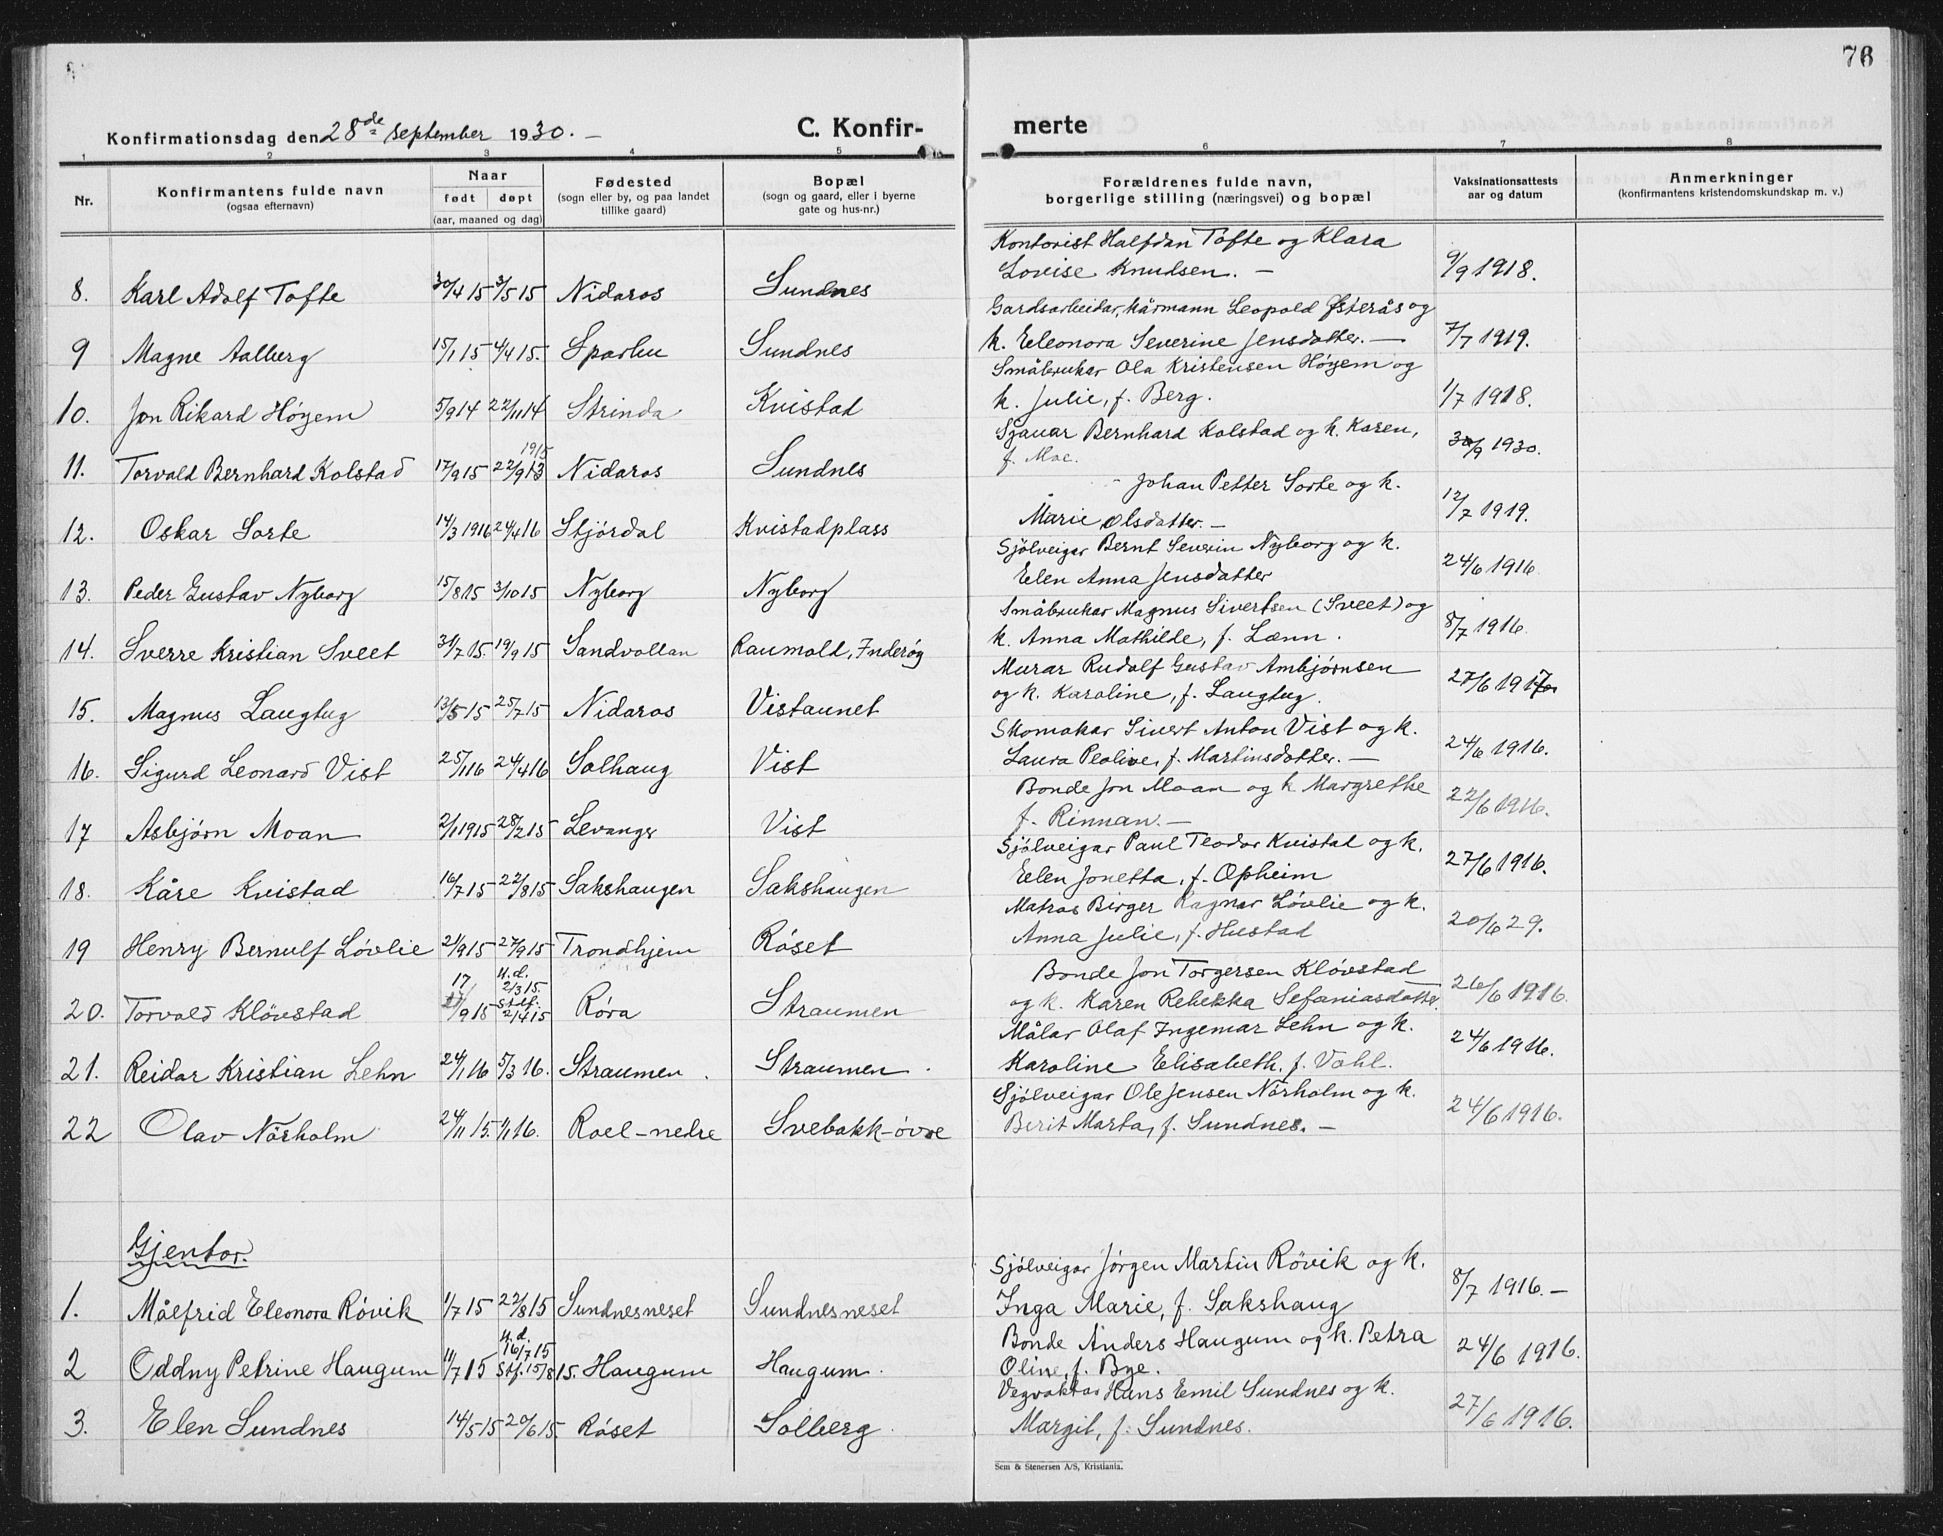 76
Konfirmationsdag den 28de september 1930. –
C. Konfir-
merte
1 2 3 4 5 6 7 8
Nr.
Konfirmantens fulde navn
(ogsaa efternavn)
Naar
født døpt
(aar, maaned og dag)
Fødested
(sogn eller by, og paa landet
tillike gaard)
Bopæl
(sogn og gaard, eller i byerne
gate og hus-nr.)
Forældrenes fulde navn,
borgerlige stilling (næringsvei) og bopæl
Vaksinationsattests
aar og datum
Anmerkninger
(konfirmantens kristendomskundskap m. v.)
Kontorist Halfdan Tofte og Klara
8. Karl Adolf Tofte 30/4 15 3/5 15 Nidaros Sundnes Lovise Knudsen. – 9/9 1918.
Gardsarbeidar, kårmann Leopold Østerås og
9 Magne Aalberg 15/1 15 4/4 15. Sparbu Sundnes k. Eleonora Severine Jensdatter. – 7/7 1919.
Småbrukar Ola Kristensen Höyem og
10. Jon Rikard Höyem 5/9 14 22/11 14 Strinda Kvistad k. Julie, f. Berg. 1/7 1918.
Sjauar Bernhard Kolstad og k. Karen,
1915
11. Torvald Bernhard Kolstad 17/9 15 22/9 13 Nidaros Sundnes f. Moe. 30/9 1930.
Johan Petter Sorte og k.
12. Oskar Sorte 14/3 1916 24/4 16 Stjördal Kvistadplass Marie Olsdatter. – 12/7 1919.
Sjölveigar Bernt Severin Nyborg og k.
13. Peder Gustav Nyborg 15/8 15 3/10 15 Nyborg Nyborg Elen Anna Jensdatter 24/6 1916.
Småbrukar Magnus Sivertsen (Sveet) og
14. Sverre Kristian Sveet 31/7 15. 19/9 15 Sandvollan Raumold, Inderöy k. Anna Mathilde, f. Lænn. 8/7 1916.
Murar Rudolf Gustav Ambjørnsen
15. Magnus Laugtug 13/5 15 25/7 15 Nidaros Vistaunet og k. Karoline, f. Laugtug. 27/6 1917
Skomakar Sivert Anton Vist og k.
16. Sigurd Leonard Vist 25/1 16 24/4 16 Solhaug Vist Laura Peolive, f. Martinsdatter. – 24/6 1916.
Bonde Jon Moan og k. Margrethe
17 Asbjørn Moan 2/1 1915 28/2 15 Levanger Vist f. Rinnan. – 22/6 1916.
Sjölveigar Paul Teodor Kvistad og k.
18. Kåre Kvistad 16/7 15 22/8 15 Sakshaugen Sakshaugen Elen Jonetta, f. Opheim 27/6 1916.
Matros Birger Ragnar Løvlie og k.
19 Henry Bernulf Lövlie 21/9 15 27/9 15 Trondhjem Röset Anna Julie, f. Hustad 20/6 29.
Bonde Jon Torgersen Klövstad
17 H.d. 2/3 15.
20. Torvald Klövstad /9 15 Stf. 2/4 15 Röra Straumen og k. Karen Rebekka Sefaniasdatter. 26/6 1916.
Målar Olaf Ingemar Lehn og k.
21. Reidar Kristian Lehn 24/1 16 5/3 16. Straumen. Straumen. Karoline Elisabeth, f. Vahl. 24/6 1916.
Sjölveigar Ole Jensen Nörholm og k.
22 Olav Nörholm 24/11 15. 1/1 16. Roel-nedre Svebakk-övre Berit Marta, f. Sundnes. – 24/6 1916.
Gjentor.
Sjölveigar Jörgen Martin Rövik og k.
1. Målfrid Eleonora Rövik 1/7 15 22/8 15 Sundnesneset Sundnesneset Inga Marie, f. Sakshaug 8/7 1916. –
Bonde Anders Haugum og k. Petra
H.d. 16/7 15
2 Oddny Petrine Haugum 11/7 15 Stf. 15/8 15. Haugum Haugum. Oline, f. Bye. 24/6 1916.
Vegvaktar Hans Emil Sundnes og k.
3. Elen Sundnes 14/5 15 20/6 15. Röset Solberg. Margit, f. Sundnes. 27/6 1916.
Sem & Stenersen A/S, Kristiania.